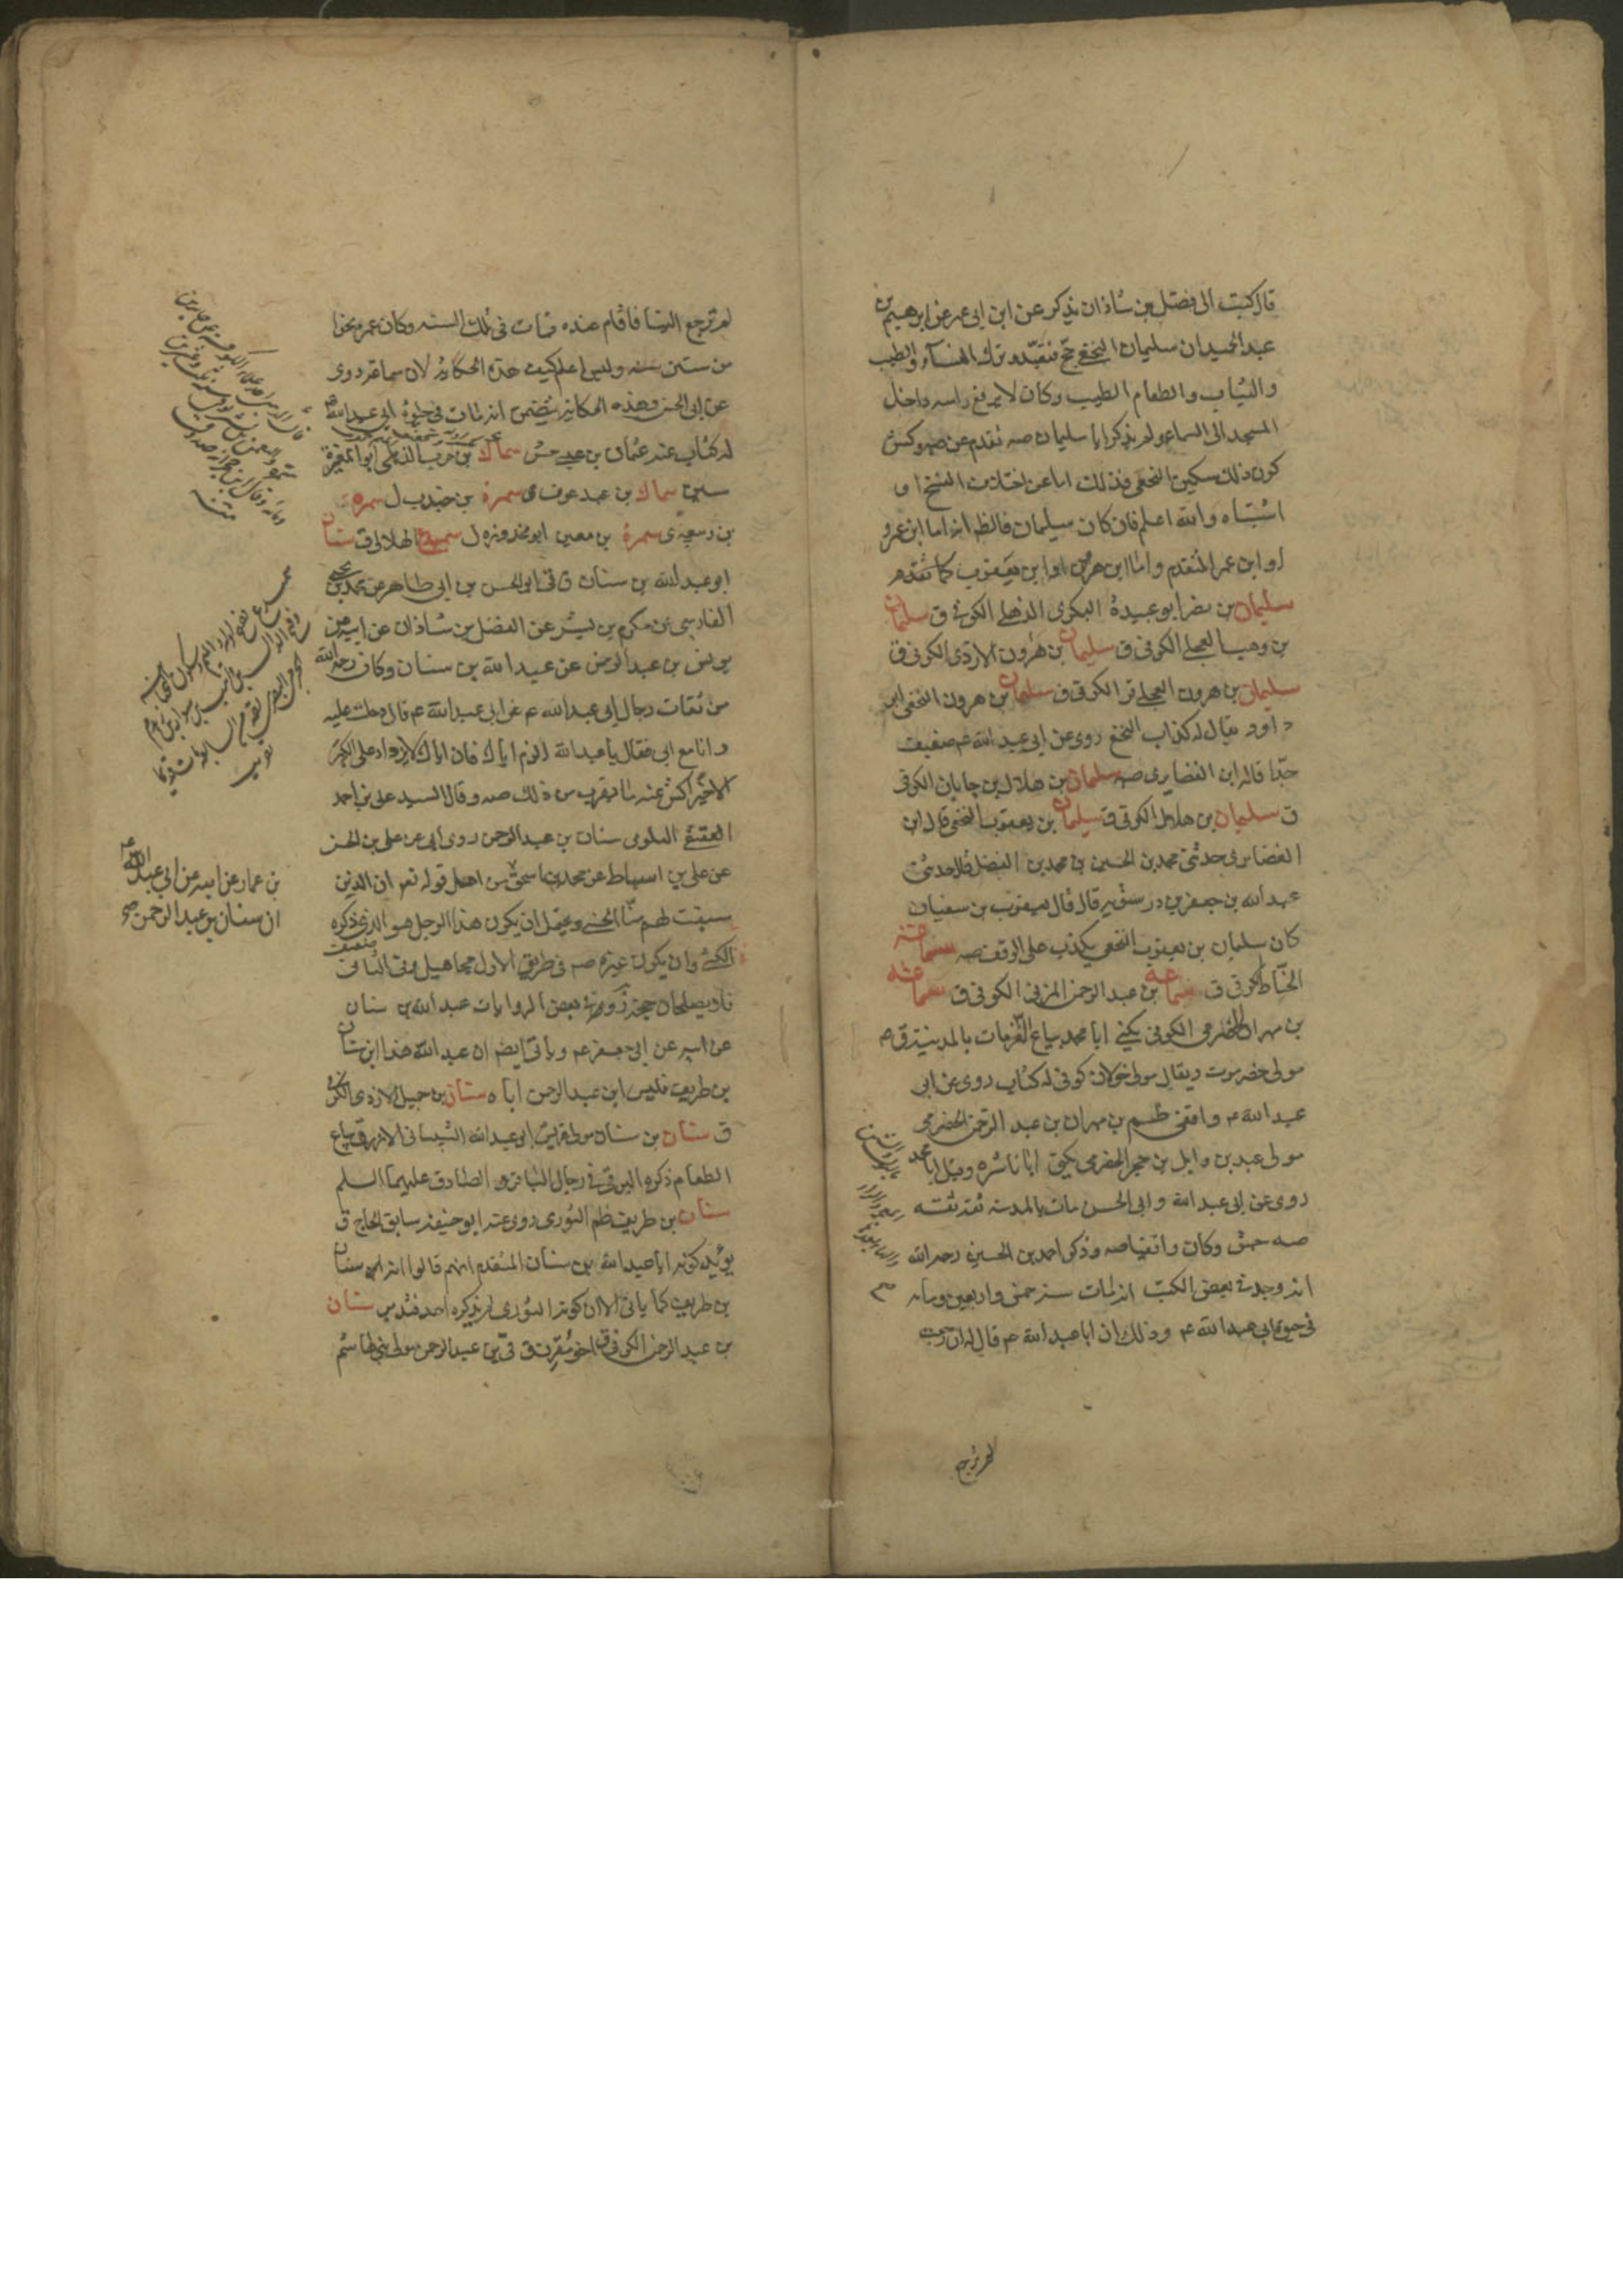 قال كتبت الى فضل بن شاذان يذكر عن ابن ابى عمير عن ابرهيم بن
عبد الحميد ان سليمان النخعي حج فتعبد وترك النساء والطيب
والثياب والطعام الطيب وكان لا يرفع راسه داخل
المسجد الى السماء ولم يذكر ابا سليمان صه تقدم عن صه وكش
كون ذلك سكين النخعي فذلك اما عن اختلاف النسخ او
اشتباه والله اعلم فان كان سليمان فالظ انه اما ابن عمرو
او ابن عمر المتقدم واما ابن هرون او ابن يعقوب كما تقدم
سليمان بن ابو عبيدة البكرى الذهلي الكوفي ق سليمان
بن وهب العجلي الكوفى ق سليمان بن هرون الازدى الكوفى ق
سليمان بن هرون العجلي قر الكوفى ق سليمان بن هرون النخعي ابو
داود يقال له كذاب النخع روى عن ابي عبد الله عم ضعيف
جدا قاله ابن الغضايرى صه سليمان بن هلال بن جابان الكوفى
ق سليمان بن هلال الكوفى ق سليمان بن يعقوب النخعي قال ابن
الغضايرى حدثنى محمد بن الحسين بن محمد بن الفضل قال حدثنى
عبد الله بن جعفر بن درستويه قال قال يعقوب بن سفيان
كان سليمان بن يعقوب النخعي يكذب على الوقف صه سماعة
الحناط الكوفى ق سماعة بن عبد الرحمن المزني الكوفى ق سماعة
بن مهران الحضرمي الكوفى يكنى ابا محمد بياع القز مات بالمدينة ق م
مولى حضرموت ويقال مولى خولان كوفى له كتاب روى عن ابى
عبد الله م واقفى ظم بن مهران بن عبد الرحمن الحضرمي
مولى عبد بن وايل بن حجر الحضرمي يكنى ابا ناشره وقيل ابا محمد
روى عن ابي عبد الله وابى الحسن مات بالمدينة ثقة ثقة
صه جش وكان واقفيا صه وذكر احمد بن الحسين رحمه الله
انه وجد في بعض الكتب انه مات سنة خمس واربعين ومائه
في حيوة ابي عبد الله عم وذلك ان ابا عبد الله عم قال له ان رجعت
لم ترجع
لم ترجع الينا فاقام عنده فمات في تلك السنة وكان عمره نحوا
من ستين سنه وليس اعلم كيف هذه الحكاية لان سماعة روى
عن ابي الحسن وهذه الحكاية يتضمن انه مات في حيوة ابي عبد الله عم
له كتاب عنه عثمان بن عيسى جش سماك بن حرب الذهلي ابو المغيرة
سين سماك بن عبد عوف ى سمرة بن جندب ل سمرة
بن ربيعة ى سمرة بن معين ابو محذوره ل سميدع الهلالي ق سنان
ابو عبد الله بن سنان ق قى ابو الحسن بن ابى طاهر عن محمد بن يحيى
الفارسي عن مكرم بن بشر عن الفضل بن شاذان عن ابيه عن
يونس بن عبد الرحمن عن عبد الله بن سنان وكان رحمه الله
من ثقات رجال ابي عبد الله عم عن ابي عبد الله عم قال دخلت عليه
وانا مع ابي فقال يا عبد الله الزم اباك فان اباك لا يزداد على الكبر
الا خيرا كش عنه ما يقرب من ذلك صه وقال السيد علي بن احمد
العقيقي العلوى سنان بن عبد الرحمن روى ابي عن علي بن الحسن
عن علي بن اسباط عن محمد بن اسحق من اهل قوله تعم ان الذين
سبقت لهم منا الحسنى ويحتمل ان يكون هذا الرجل هو الذي ذكره
الكشي وان يكون غيره صه في طريق الاول مجاهيل وفى الثاني ضعيف
فلا يصلحان حجة وفي بعض الروايات عبد الله بن سنان
عن ابيه عن ابي جعفر عم وياتي ايضا ان عبد الله هذا ابن سنان
بن طريف فليس ابن عبد الرحمن اباه سنان بن جميل الازدي الكوفى
ق سنان بن سنان مولى قريش ابي عبد الله الشيباني الازرق بياع
الطعام ذكره البرقي في رجال الباقر والصادق عليهما السلم
سنان بن طريف ظم الثوري روى عنه ابو حنيفة سابق الحاج ق
يؤيد كونه ابا عبد الله بن سنان المتقدم انهم قالوا انه ابن سنان
بن طريف كما ياتي الا ان كونه الثوري لم يذكره احد فتدبر سنان
بن عبد الرحمن الكوفى ق اخو مقرن ق قى بن عبد الرحمن مولى بني هاشم
بن عمار عن ابيه عن ابي عبد الله عم
ان سنان بن عبد الرحمن صح